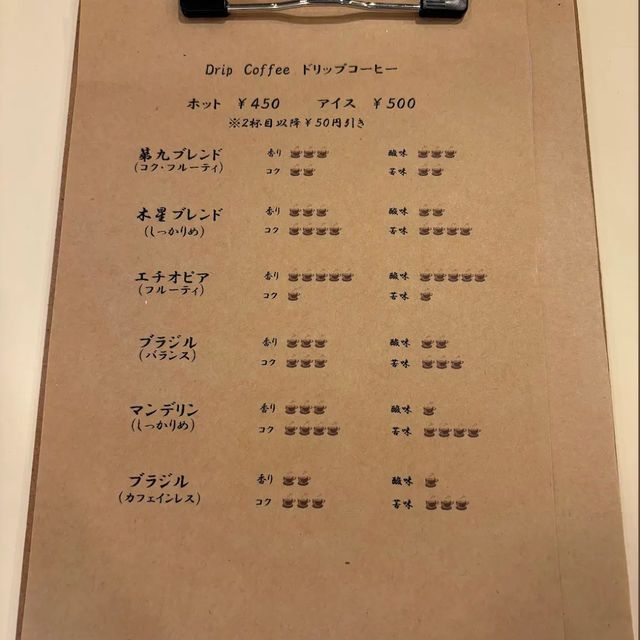 Drip Coffee ドリップコーヒー
ホット ¥450 アイス ¥500
※2杯目以降¥50円引き
第九ブレンド 香り 酸味
(コク・フルーティ) コク 苦味
木星ブレンド 香り 酸味
(しっかりめ) コク 苦味
エチオピア 香り 酸味
(フルーティ) コク 苦味
ブラジル 香り 酸味
(バランス) コク 苦味
マンデリン 香り 酸味
(しっかりめ) コク 苦味
ブラジル 香り 酸味
(カフェインレス) コク 苦味